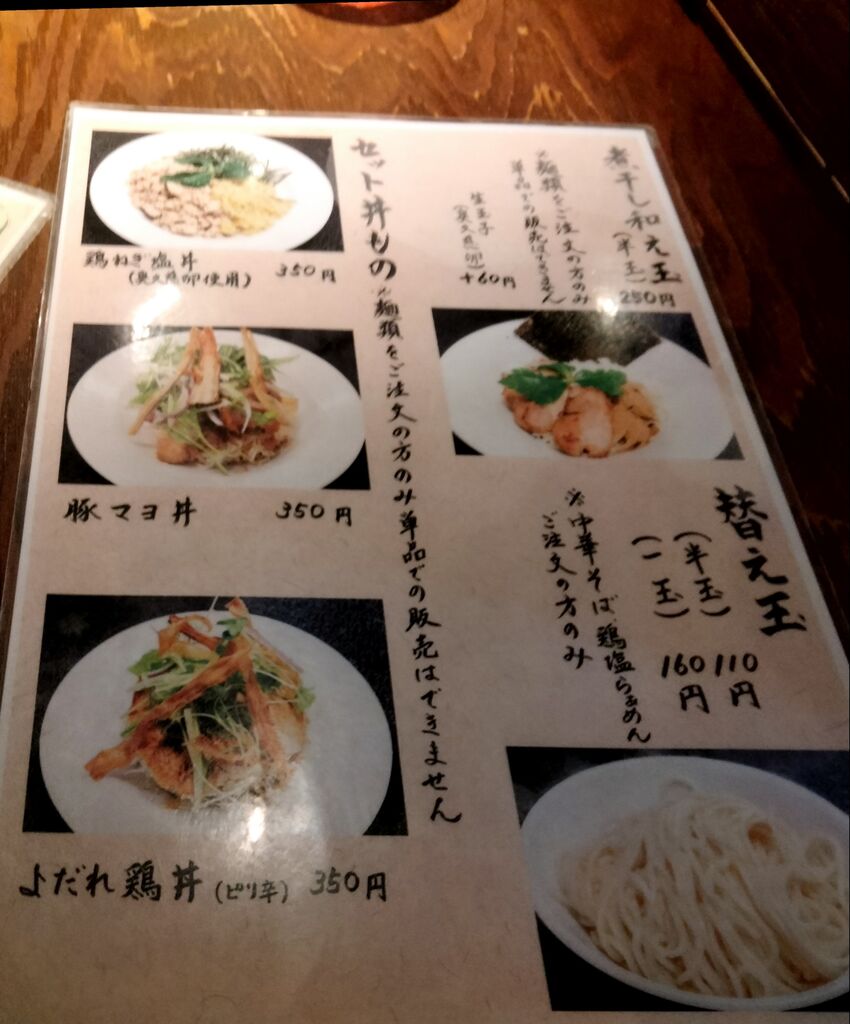 煮干し和え玉
(半玉)
250円
※麺類をご注文の方のみ
単品での販売はできません
生玉子
(奥久慈卵)
+60円
替え玉
(半玉) 110円
(一玉) 160円
※中華そば 鶏塩らぁめん
ご注文の方のみ
セット丼もの ※麺類をご注文の方のみ単品での販売はできません
鶏ねぎ塩丼
(奥久慈卵使用) 350円
豚マヨ丼 350円
よだれ鶏丼(ピリ辛) 350円